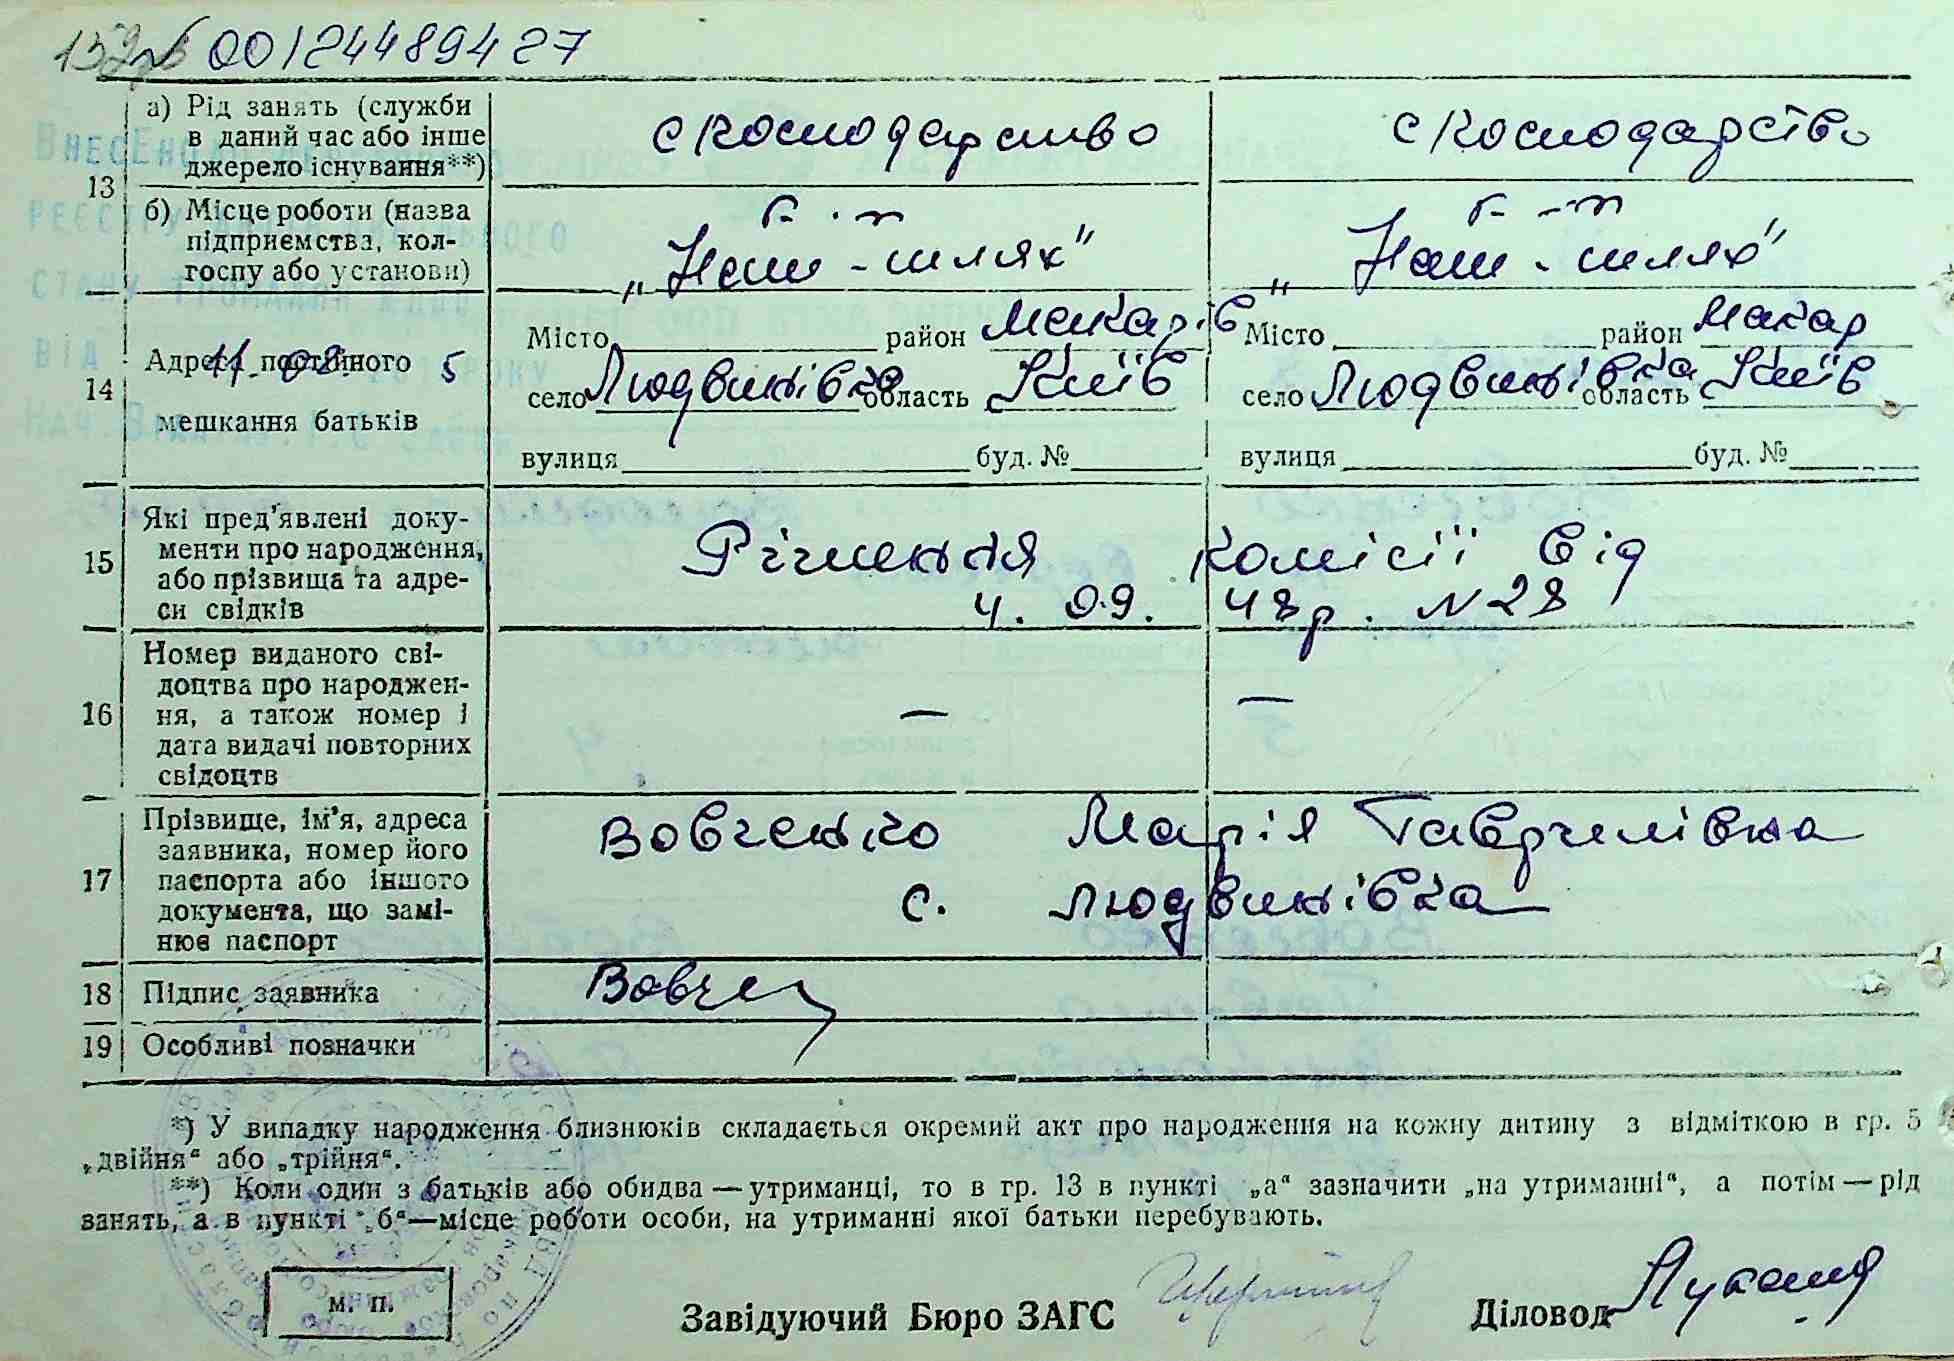 00124489427
13
а) Рід занять (служби
в даний час або інше
джерело існування**)
с господарство
с господарство
б) Місце роботи (назва
підприємства, кол-
госпу або установи)
к-г-п
„Наш-шлях"
„Наш-шлях"
ВнесЕно
реєстру
стану громадян
від 11.08. 5 року
14
Адреса постійного
мешкання батьків
Місто район Макарів
село Людвинівка область Київ
вулиця буд. №
Місто район Макар
село Людвинівка область Київ
вулиця буд. №
15
Які пред'явлені доку-
менти про народження,
або прізвища та адре-
си свідків
Рішення комісії від
4. 09. 48р. N 28
16
Номер виданого сві-
доцтва про народжен-
ня, а також номер і
дата видачі повторних
свідоцтв
— —
17
Прізвище, ім'я, адреса
заявника, номер його
паспорта або іншого
документа, що замі-
нює паспорт
Вовченко Марія Гаврилівна
с. Людвинівка
18 Підпис заявника
Вовчен
19 Особливі позначки
*) У випадку народження близнюків складається окремий акт про народження на кожну дитину з відміткою в гр. 5
„двійня“ або „трійня“.
**) Коли один з батьків або обидва — утриманці, то в гр. 13 в пункті „а“ зазначити „на утриманні“, а потім — рід
занять, а в пункті „б“—місце роботи особи, на утриманні якої батьки перебувають.
м. п.
Завідуючий Бюро ЗАГС
Діловод